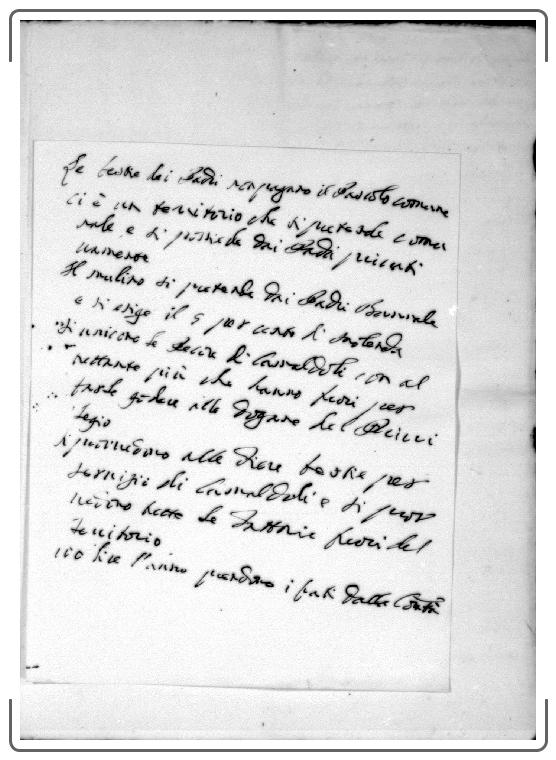 Le bestie dei Padri mangano il Pascolo comune
ci è un territorio che si pretende comu
nale e si possiede dai Padri privati
vamente
Il mulino si pretende dai Padri Baronale
e si esige il 5 per cento di molenda
si uniscono le Pecore di Camaldoli con al
trettante più che hanno fuori per
farle godere alle Dogane del Privi
legio
si provvedono alle Fiere bestie per
servizio di Camaldoli e si
tutte le Fattorie fuori del
Territorio
100 lire l'anno prendono i frati dalla Comtà